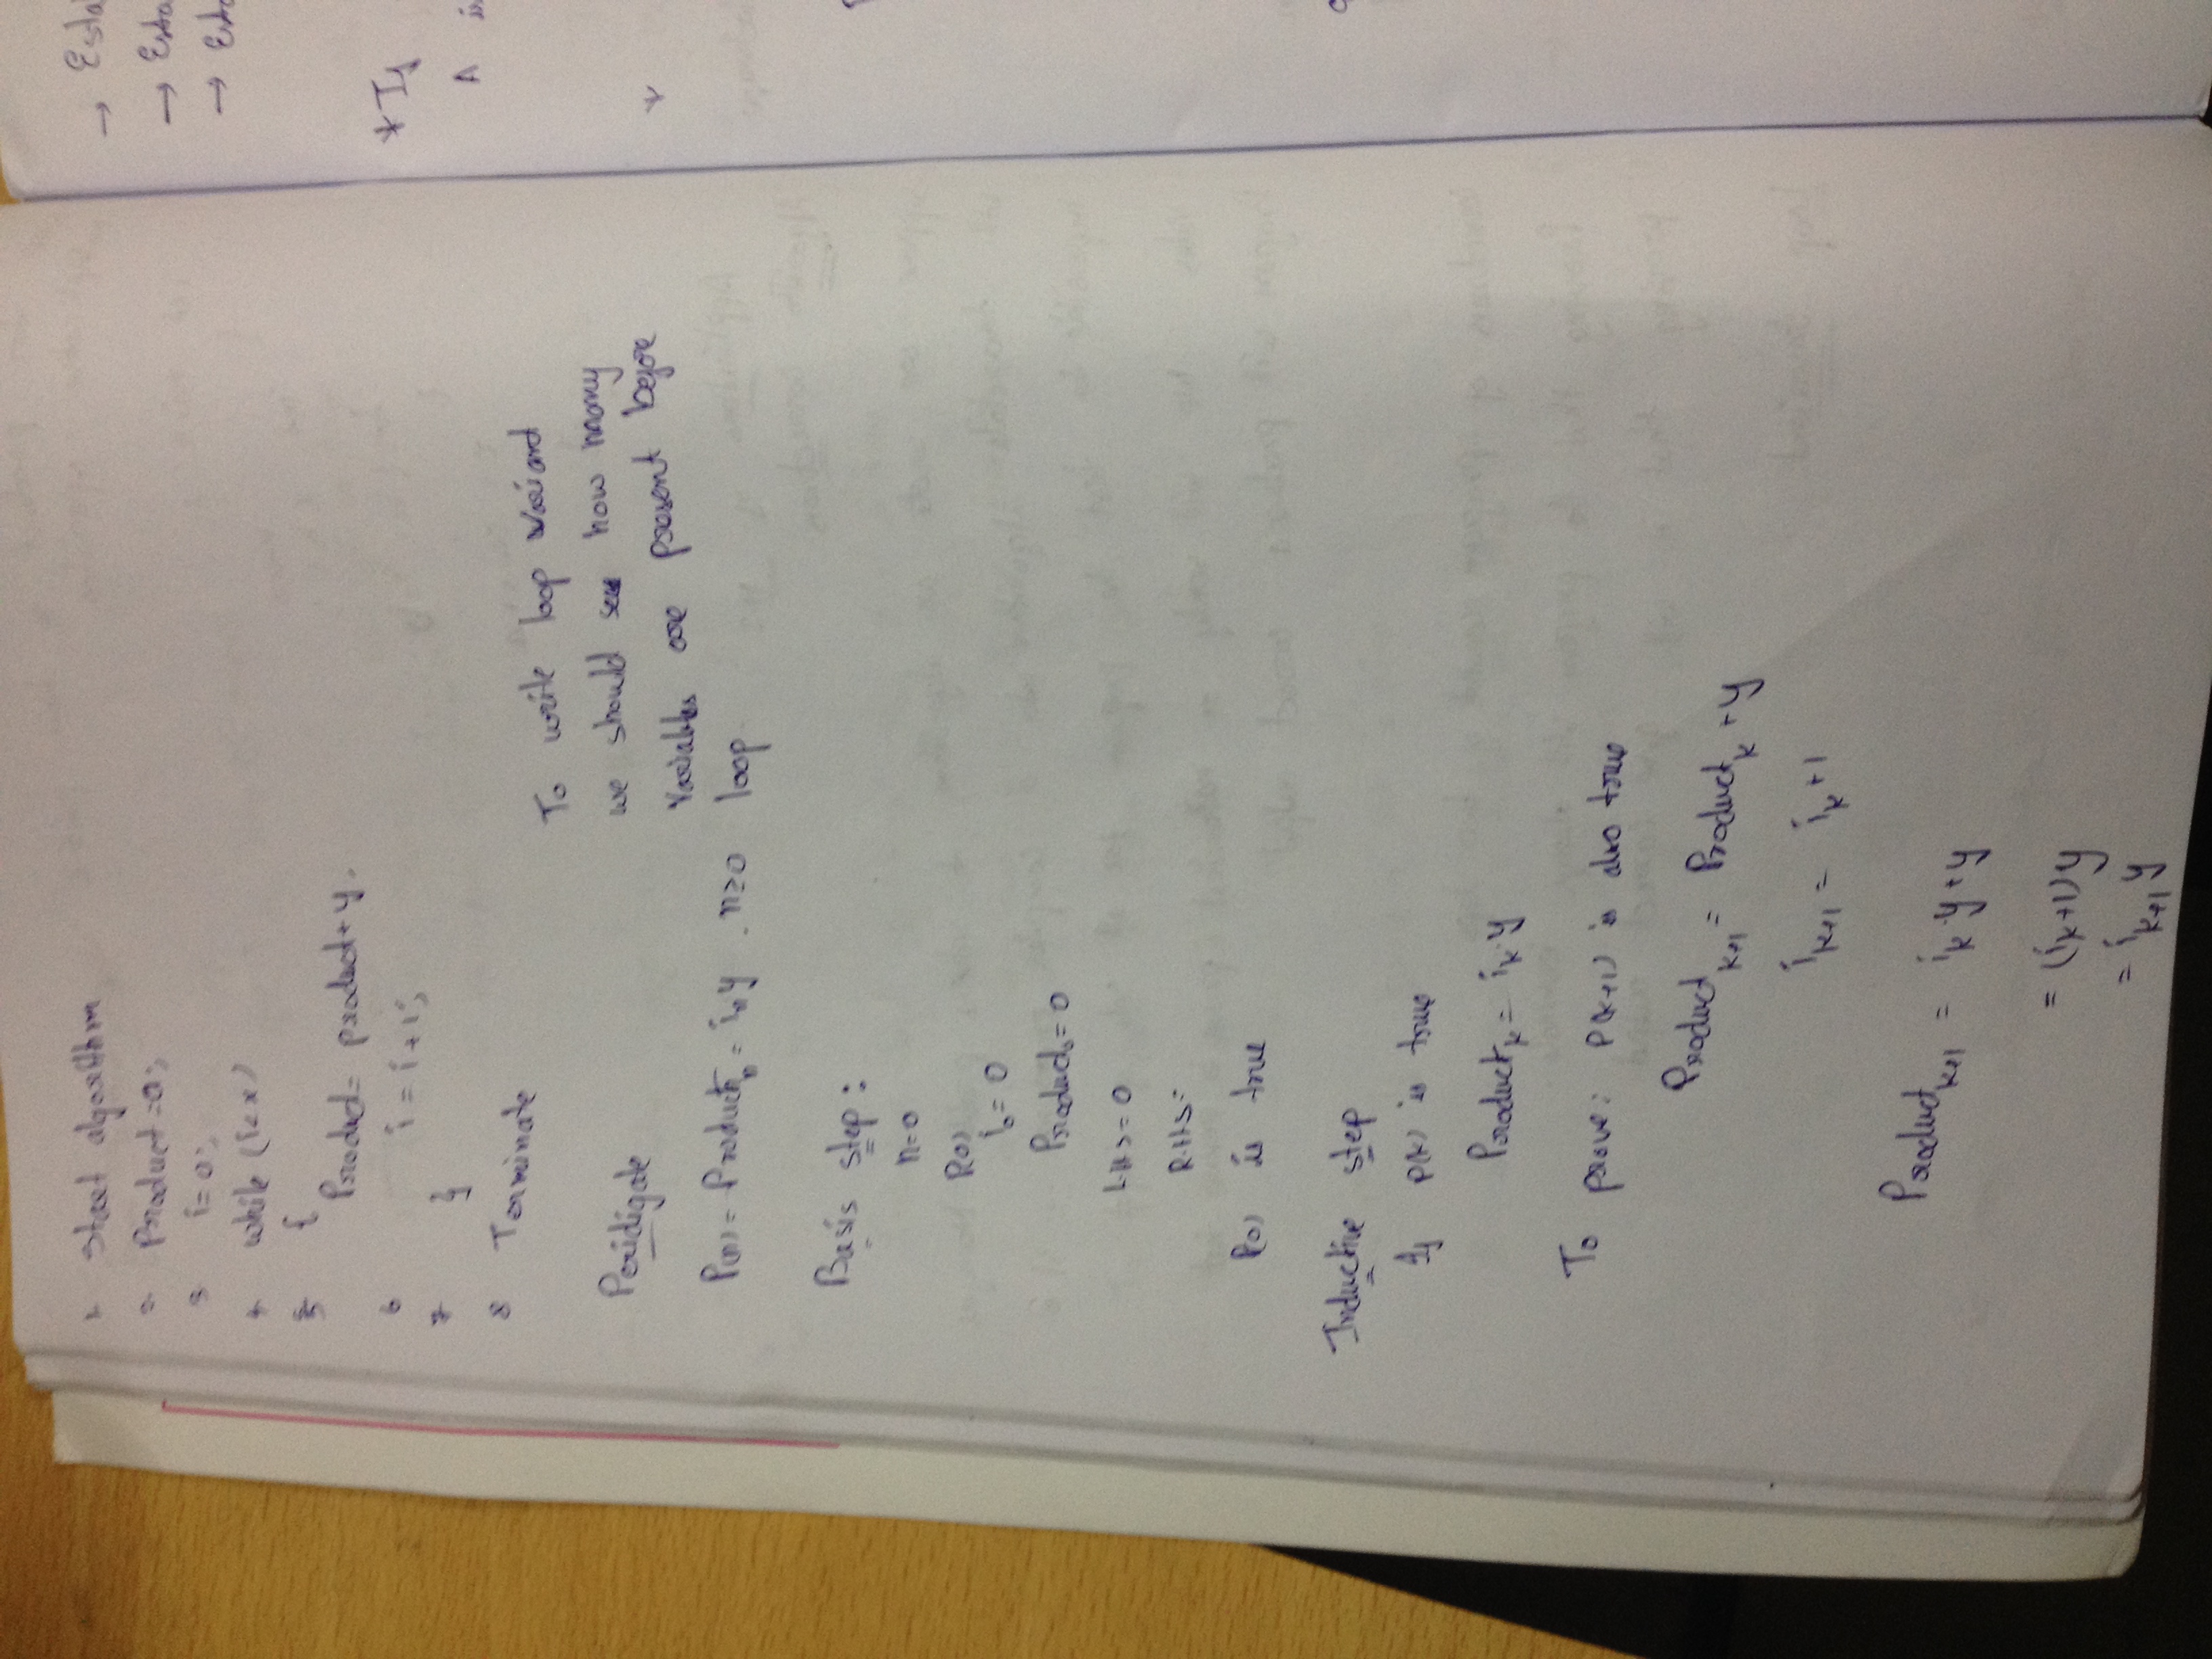 1 Start algorithm
2. Product = 0;
3 i=0;
4 while (i<x)
5 {
Product = product + y.
6 i = i + 1;
7 }
8 Terminate
To write loop variant
we should see how many
variables are present before
loop.
Peridigate
P(n) = Productₙ = iₙy . n≥0
Basis step :
n=0
P(0)
i₀ = 0
Product₀ = 0
L.H.S = 0
R.H.S =
P(0) is true
Inductive step
If P(k) is true
Productₖ = iₖ.y
To prove : P(k+1) is also true
Productₖ₊₁ = Productₖ + y
iₖ₊₁ = iₖ + 1
Productₖ₊₁ = iₖ.y + y
= (iₖ+1)y
= iₖ₊₁ y
→
→
→
* If
A is